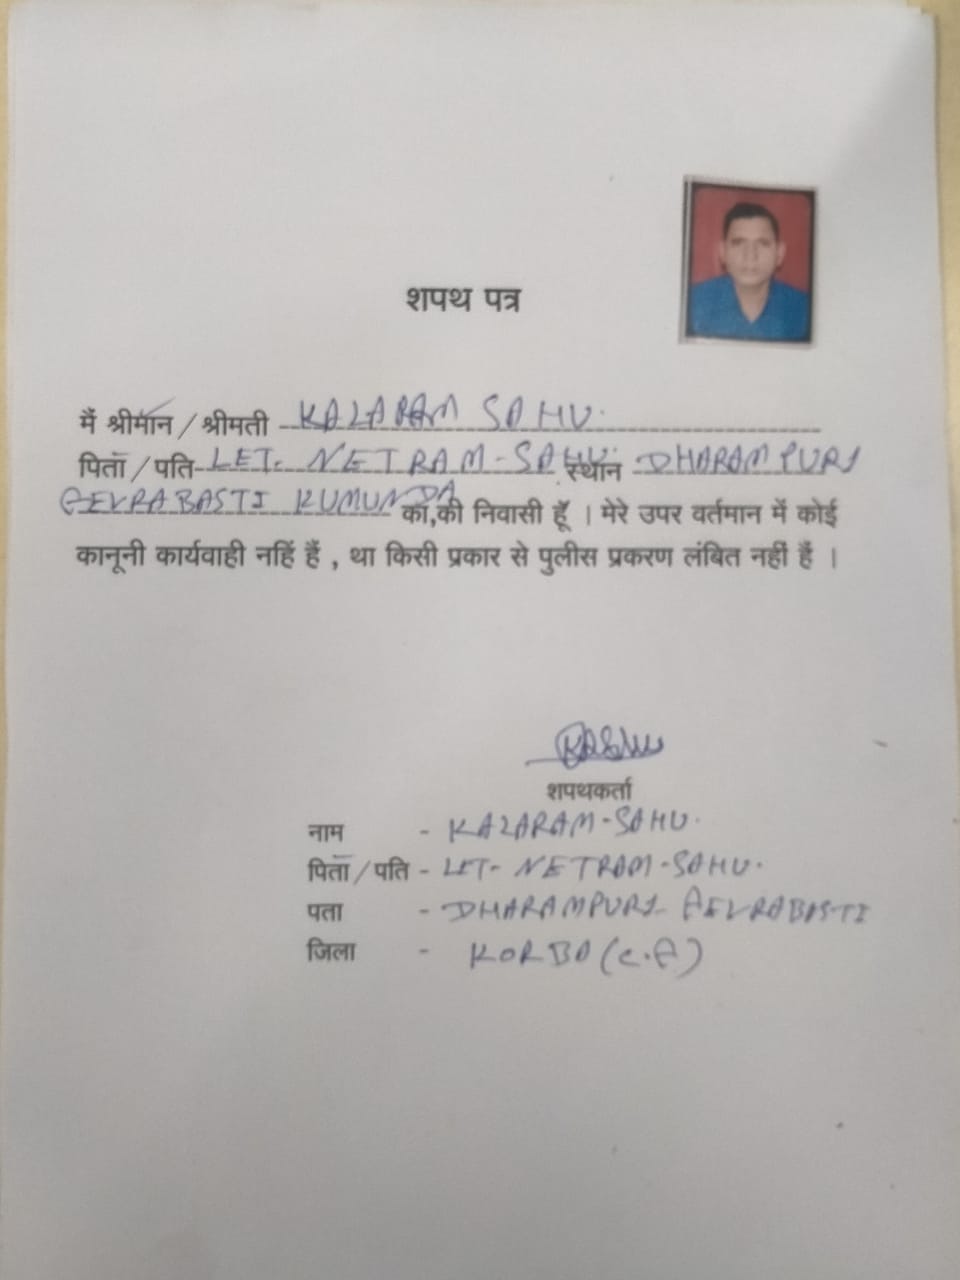 शपथ पत्र
मैं श्रीमान / श्रीमती KALARAM SAHU.
पिता / पति- LET. NETRAM-SAHU. स्थान DHARAMPURI
GEVRABASTI KUMUNDA का,की निवासी हूँ । मेरे उपर वर्तमान में कोई
कानूनी कार्यवाही नहिं हैं , था किसी प्रकार से पुलीस प्रकरण लंबित नहीं हैं ।
शपथकर्ता
नाम - KALARAM-SAHU.
पिता / पति - LET- NETRAM-SAHU.
पता - DHARAMPURI- GEVRABASTI
जिला - KORBA (C.G)